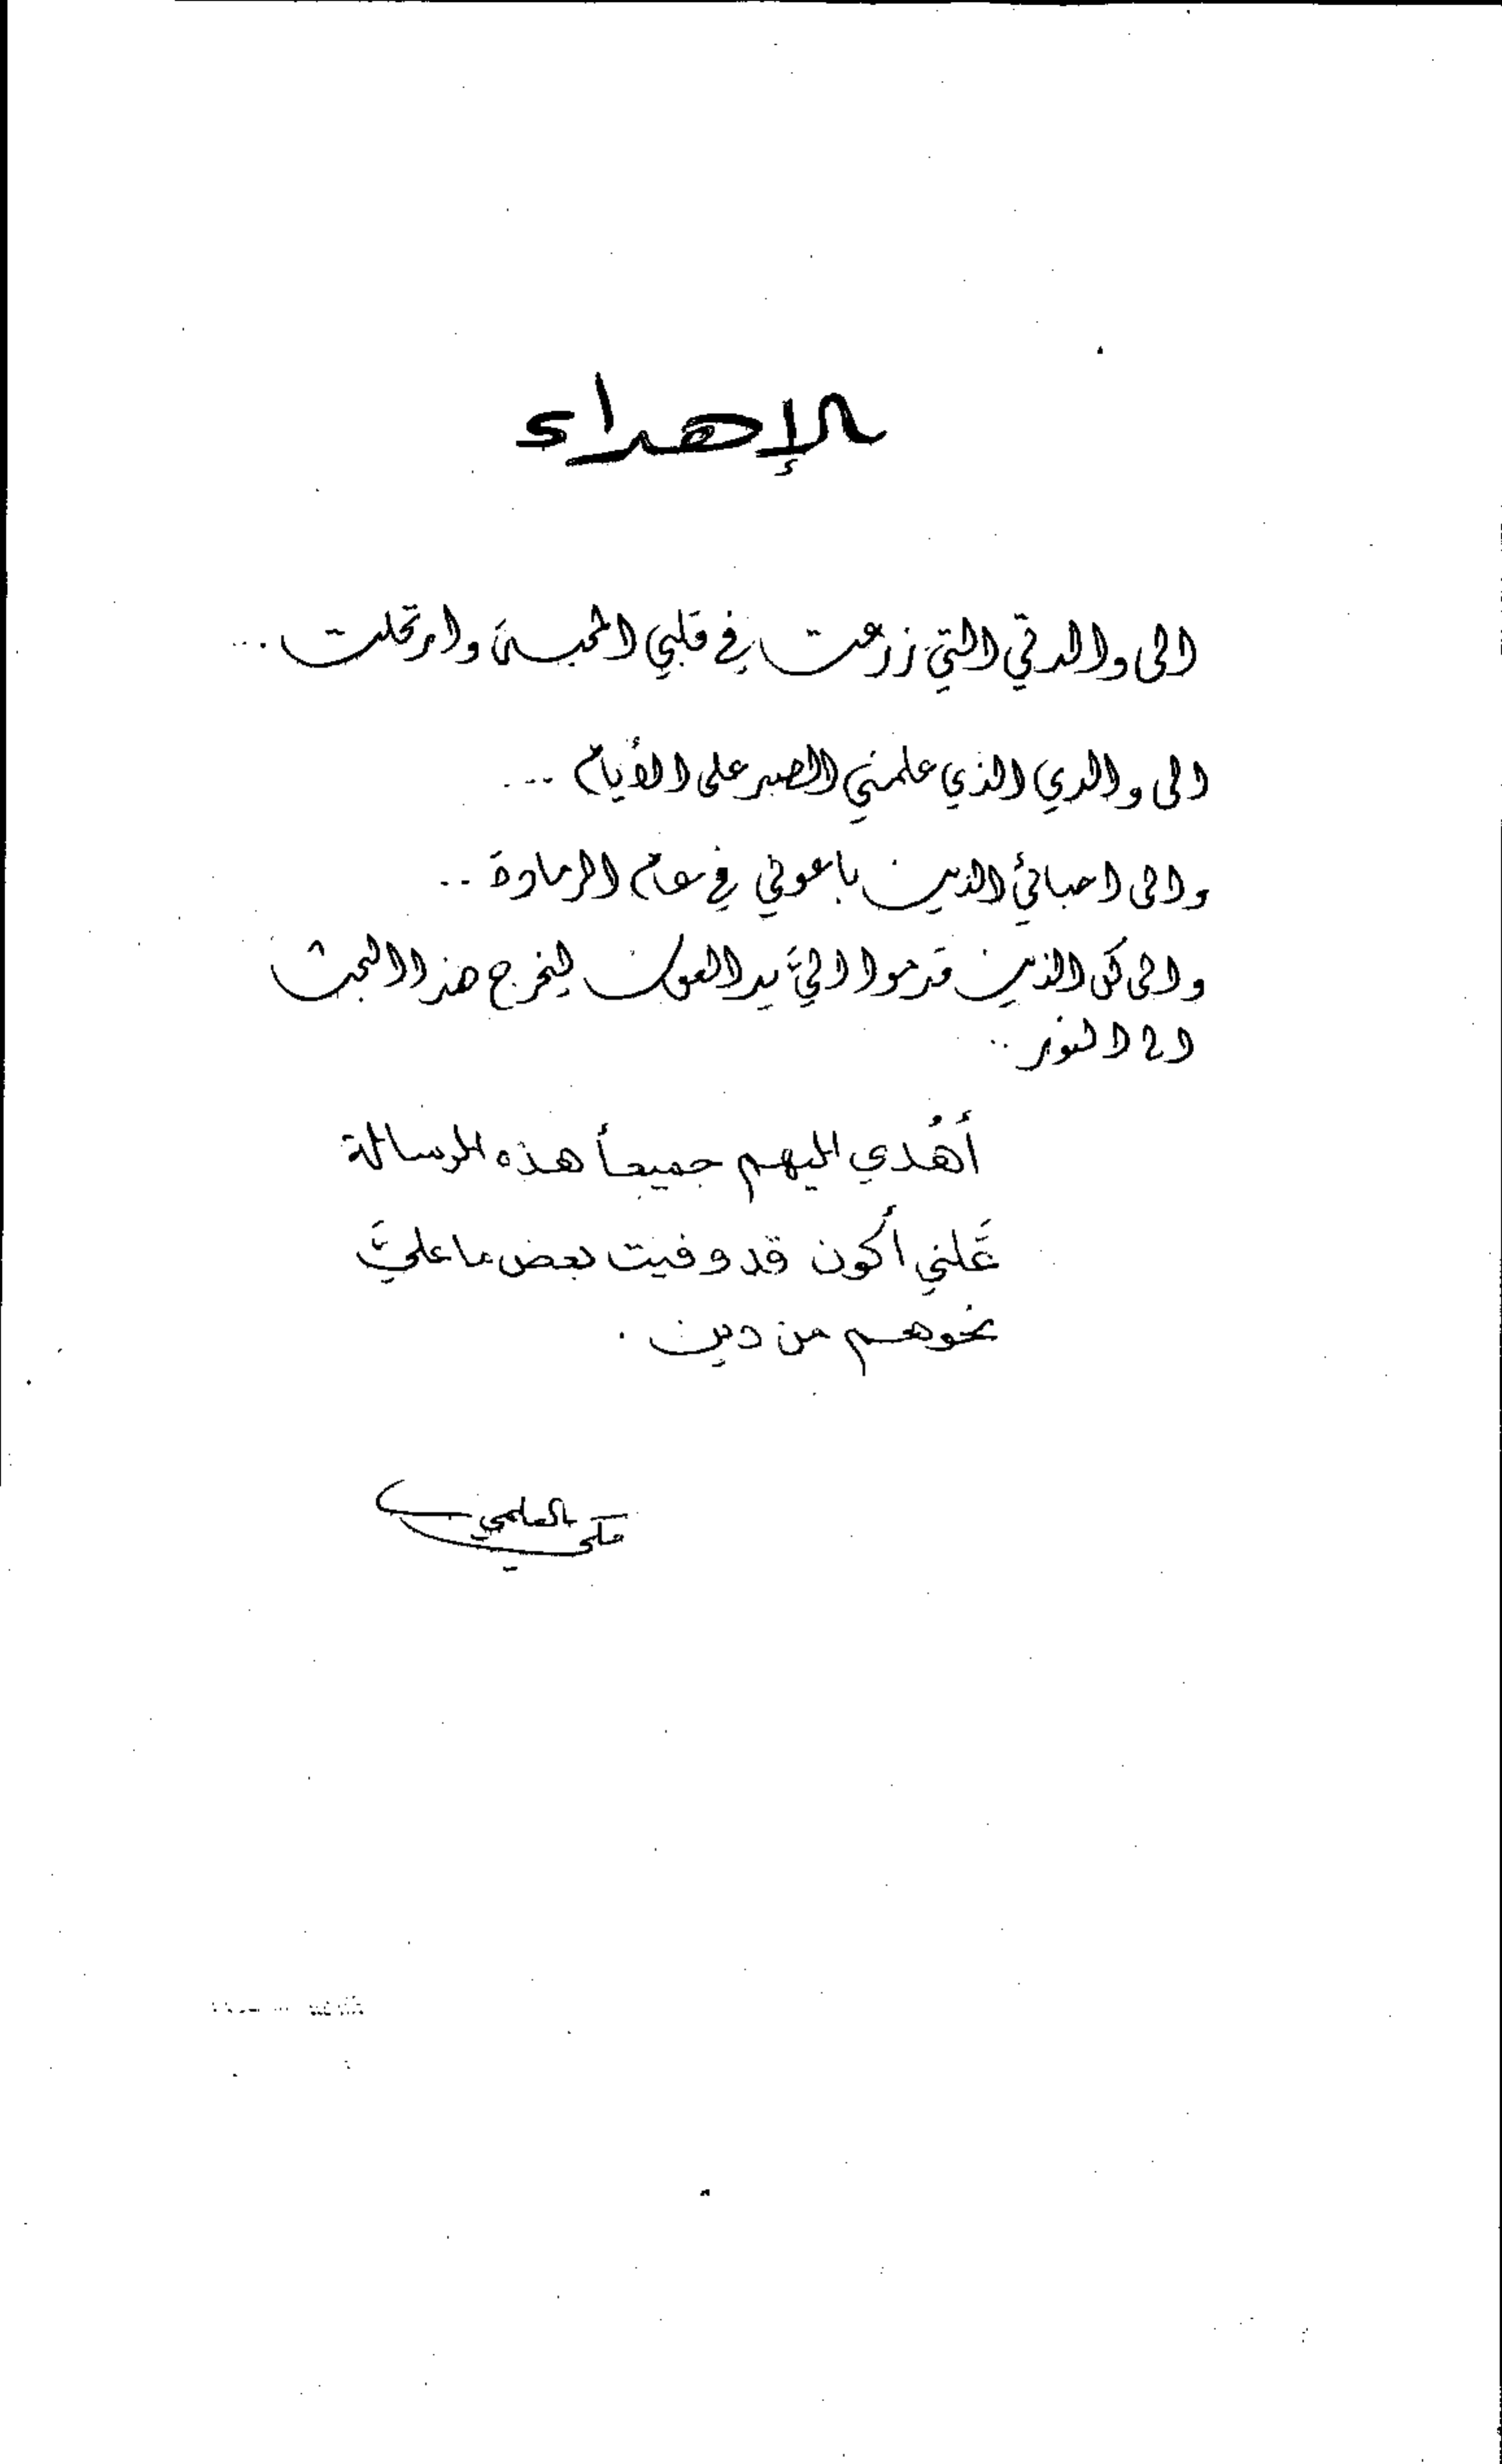 الإهداء
الى والدتي التي زرعت في قلبي المحبة وارتحلت ...
الى والدي الذي علمني الصبر على الأيام ...
والى احبائي الذين باعوني في عام الرمادة ..
والى كل الذين قدموا اليَّ يد العون ليخرج هذا البحث
الى النور ..
أَهُدي اليهم جميعاً هذه الرسالة
عَلني أكون قد وفيت بعض ما عليَّ
نحوهم من دين .
مكي العلمي